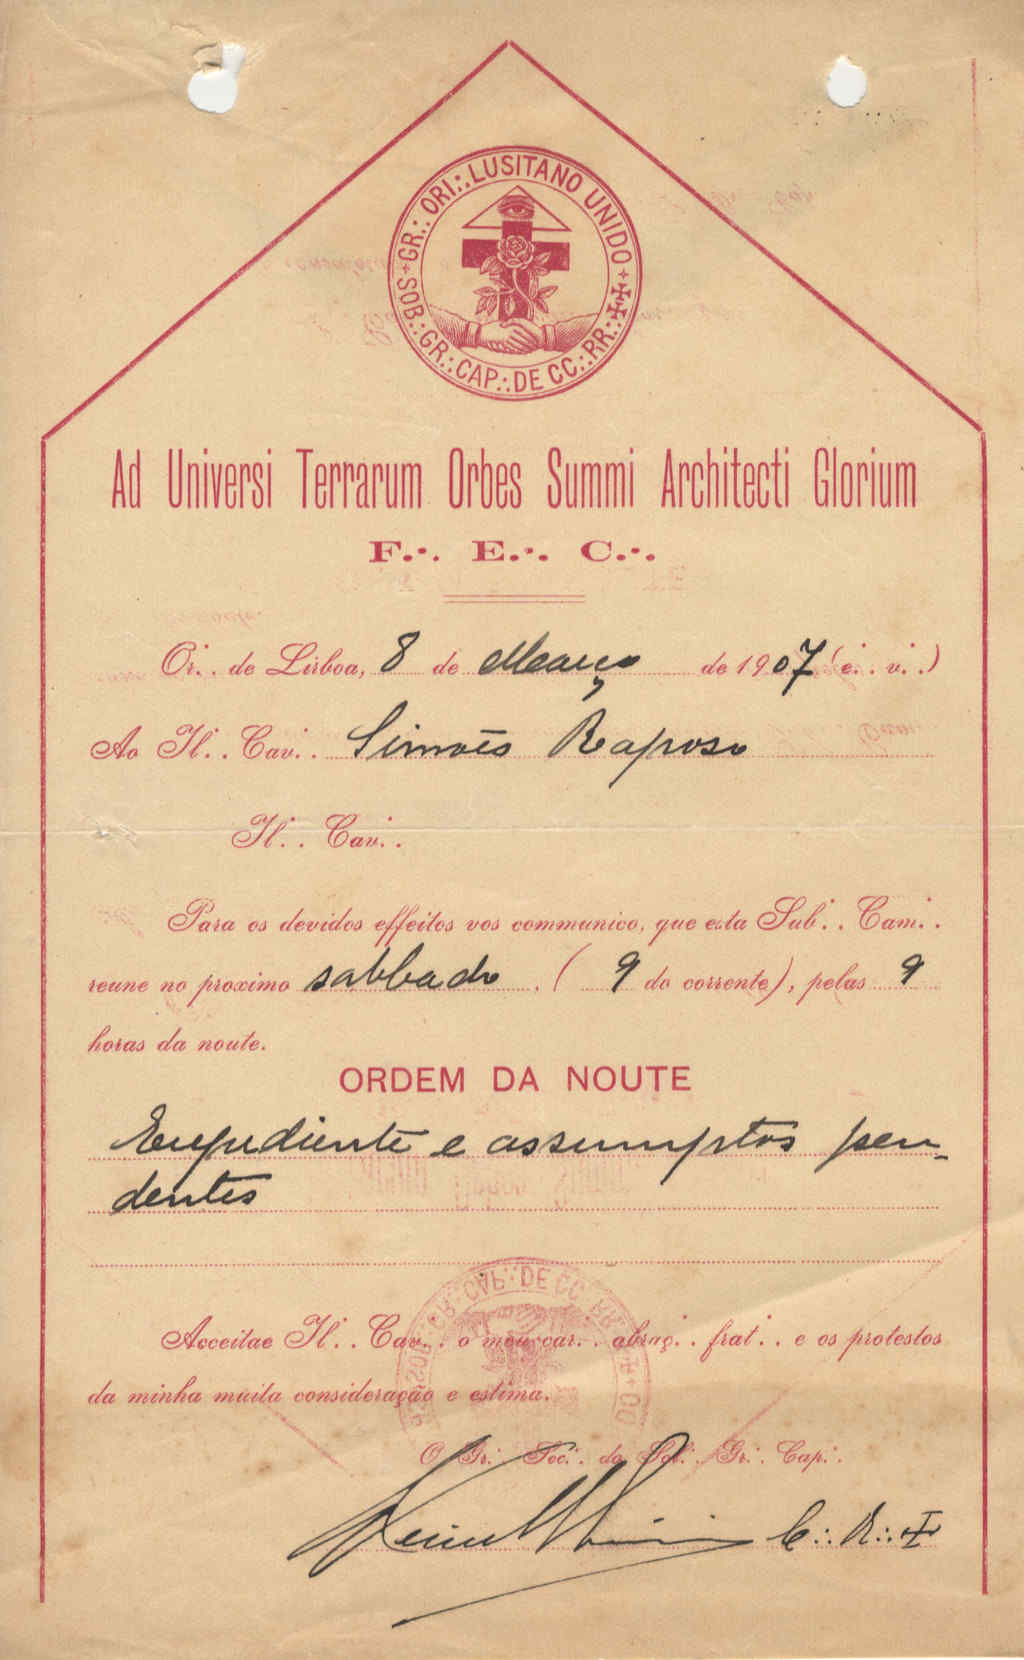 GR∴ ORI∴ LUSITANO UNIDO
SOB∴ GR∴ CAP∴ DE CC∴ RR∴ ✠✠
Ad Universi Terrarum Orbes Summi Architecti Glorium
F∴ E∴ C∴
Or∴ de Lisboa, 8 de Março de 1907 (e∴ v∴)
Ao Il∴ Cav∴ Simões Raposo
Il∴ Cav∴
Para os devidos effeitos vos communico, que esta Sub∴ Cam∴
reune no proximo sabbado. (9 do corrente), pelas 9
horas da noute.
ORDEM DA NOUTE
Expediente e assumptos pen-
dentes
Acceitae Il∴ Cav∴ o meu car∴ abraç∴ frat∴ e os protestos
da minha muita consideração e estima.
O Gr∴ Sec∴ do Sob∴ Gr∴ Cap∴
C∴ R∴ ✠